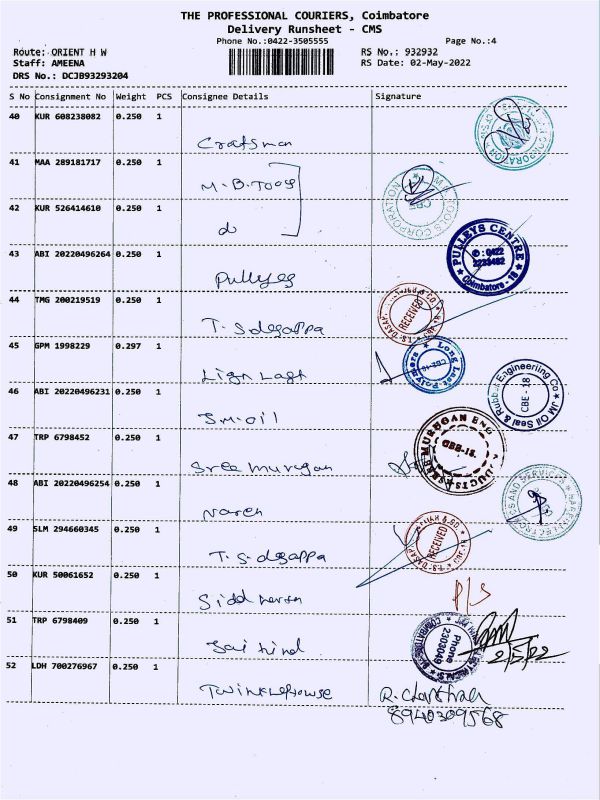 THE PROFESSIONAL COURIERS, Coimbatore
Delivery Runsheet - CMS
Phone No.:0422-3505555 Page No.:4
Route: ORIENT H W RS No.: 932932
Staff: AMEENA RS Date: 02-May-2022
DRS No.: DCJB93293204
S No Consignment No Weight PCS Consignee Details Signature
40 KUR 608238082 0.250 1
Craftsman
41 MAA 289181717 0.250 1
M.B.Tools
42 KUR 526414610 0.250 1
do
43 ABI 20220496264 0.250 1
PULLEYS CENTRE
✆ : 0422
2233482
Coimbatore - 18
Pulleys
44 TMG 200219519 0.250 1
RECEIVED
T.S dasappa
45 GPM 1998229 0.297 1
Long Last Polymers
CBE-18
46 ABI 20220496231 0.250 1
JM Oil Seal & Rubber Engineering Co
CBE - 18
Jm.oil
47 TRP 6798452 0.250 1
SREE MURUGAN ENG
CBE-18.
Sree murugan
48 ABI 20220496254 0.250 1
Naren
49 SLM 294660345 0.250 1
RECEIVED
T.S.dasappa
50 KUR 50061652 0.250 1
P/S
51 TRP 6798409 0.250 1
Phone
2303049
Jai hind
2/5/22
52 LDH 700276967 0.250 1
Twinklehouse
8940309568